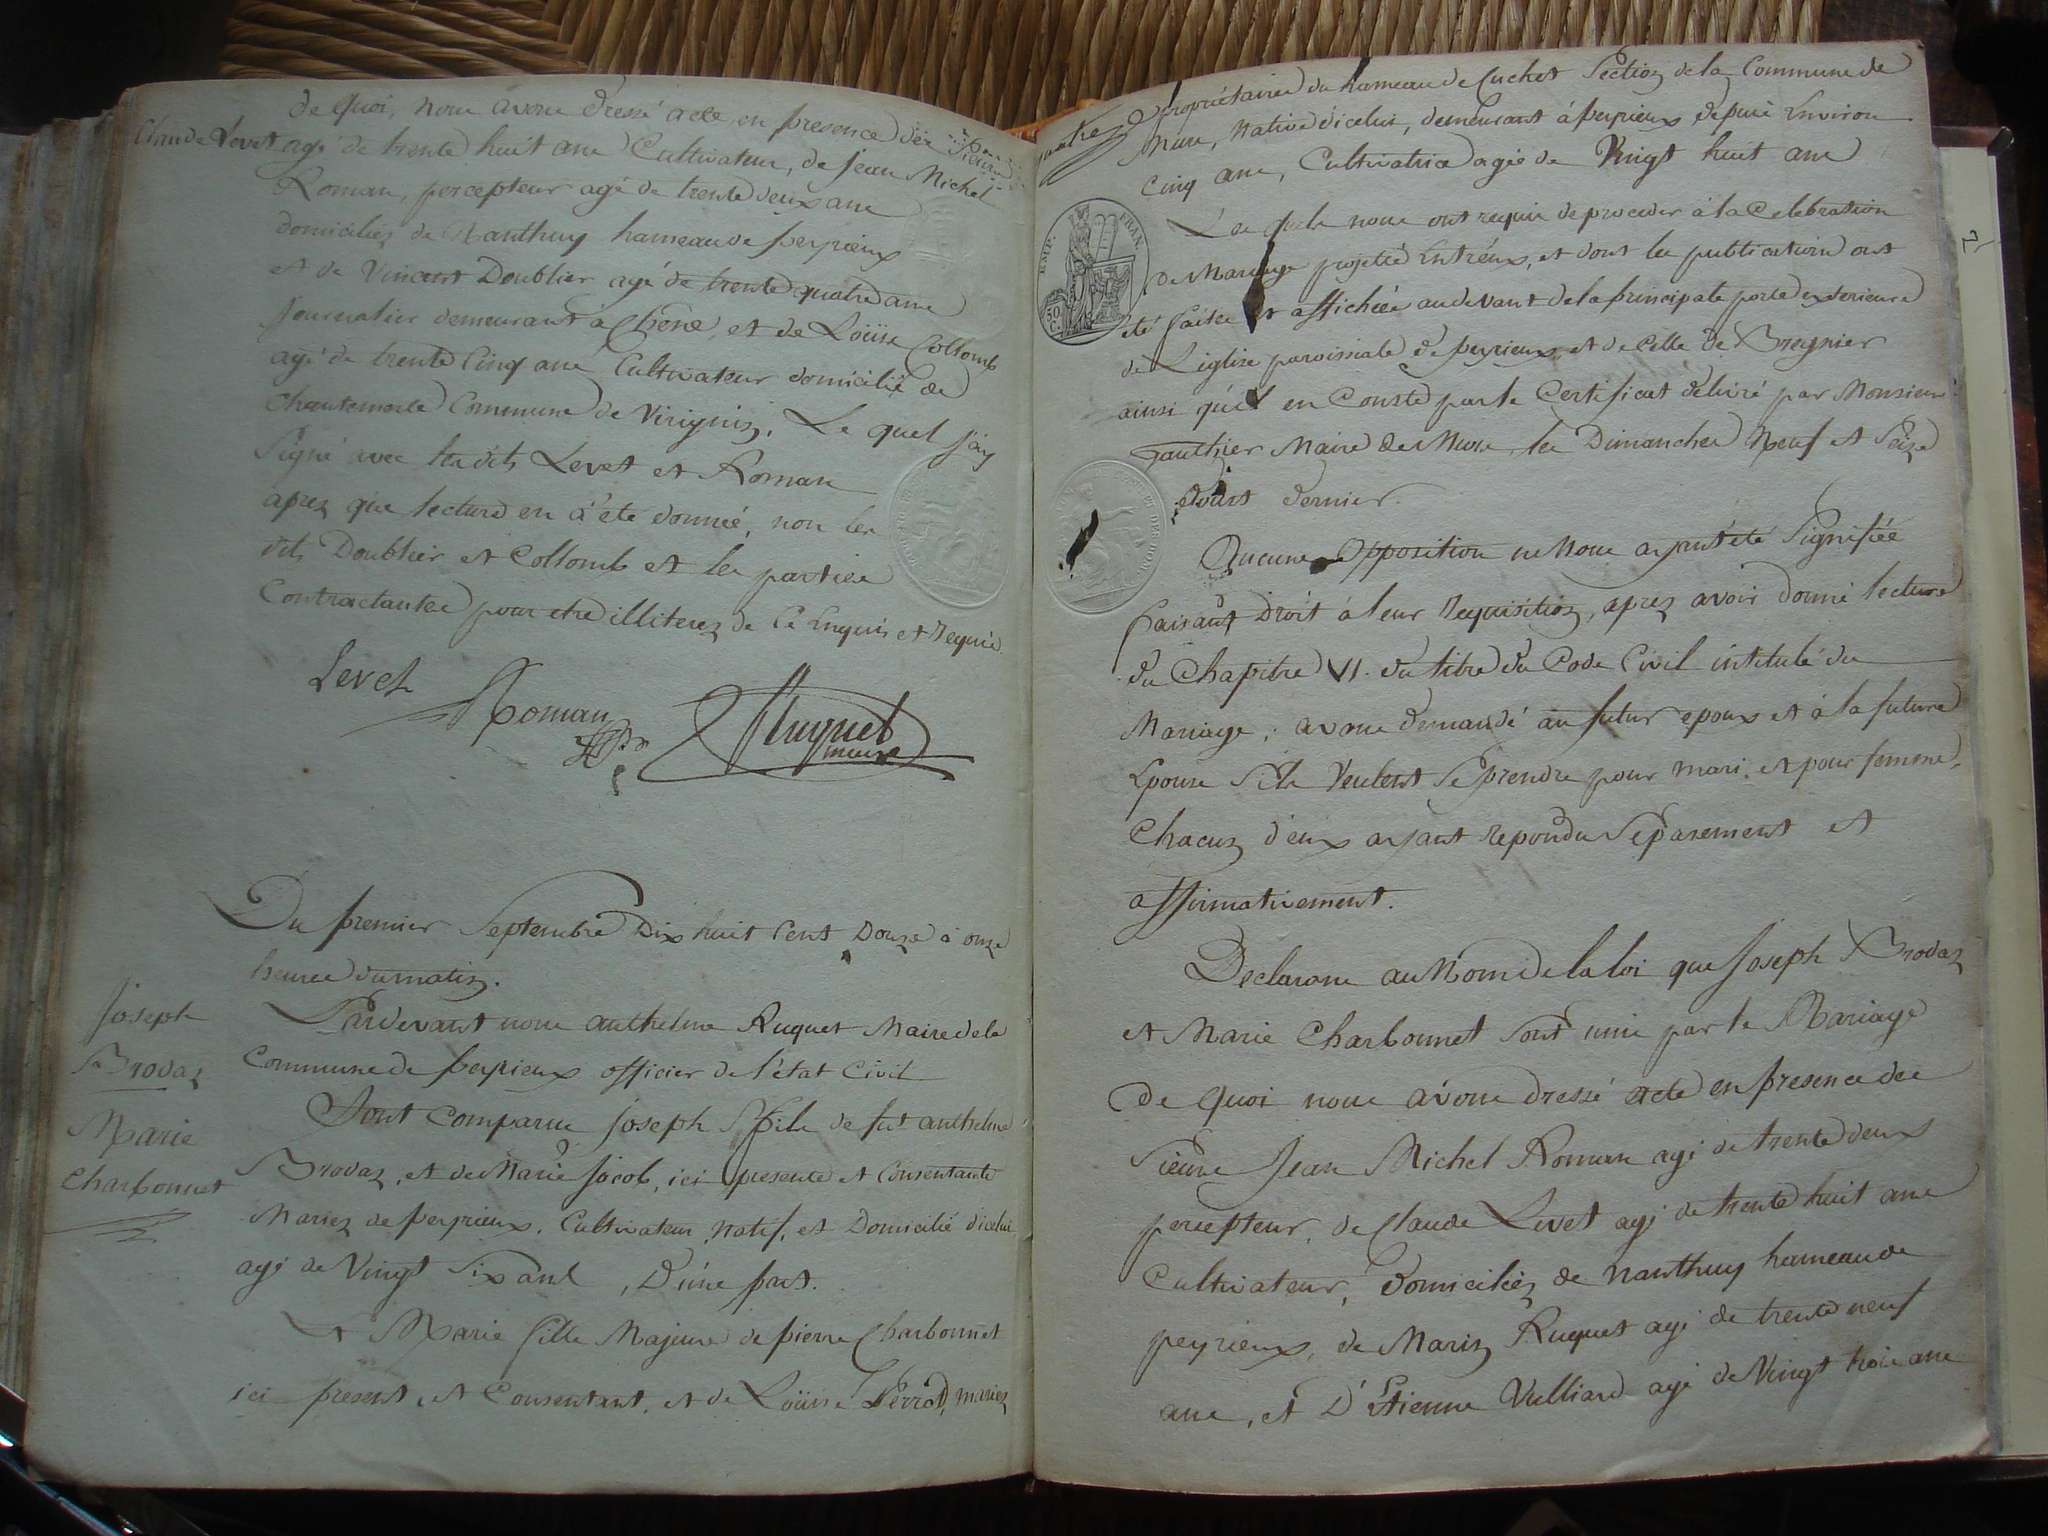 de quoi, nous avons dressé acte en presence des Sieurs
Claude Levet agé de trente huit ans Cultivateur, de Jean Michel
Roman, percepteur agé de trente deux ans
domiciliez de Nanthuy hameau de peyrieux
et de Vincent Doublier agé de trente quatre ans
Journalier demeurant a et de Loüise Collomb
agé de trente Cinq ans Cultivateur domicilié de
Chantemerle Commune de Virignin. Le quel j'ay
Signé avec lesdits Levet et Roman
aprez que lecture en a été donnée, non les
dits Doublier et Collomb et les parties
Contractantes pour etre illiterez de Ce Enquis et Requis.
Levet
Roman
Ruquet
maire
Du premier Septembre Dix huit Cent Douze à onze
heures du matin.
Joseph
Brodaz
Marie
Charbonnet
Pardevant nous anthelme Ruquet Maire de la
Commune de peyrieux officier de l'état Civil
Sont Comparus Joseph fils de fut anthelme
Brodaz, et de Marie Jacob, ici presente et Consentante
Mariez de peyrieux, Cultivateur natif, et Domicilié d'icelui
agé de Vingt Six ans, D'une part.
Et Marie fille Majeure de pierre Charbonnet
ici present, et Consentant, et de Loüise Perrod, mariez
propriétaires du hameau de Cuchet Section de la Commune de
Mure, Native d'icelui, demeurant à peyrieux depuis Environ
Cinq ans, Cultivatrice agée de Vingt huit ans
Les quels nous ont requis de proceder à la Celebration
EMP. FRAN.
50 C.
de Mariage projetté Entréux, et dont les publications ont
été faites et affichées au devant de la principale porte exterieure
de L'eglise paroissiale de peyrieux, et de Celle de Bregnier
ainsi qu'il en Conste par le Certificat delivré par Monsieur
Gauthier Maire de Mure, les Dimanches Neuf et Seize
doust dernier.
Aucune opposition ne Nous ayant été Signifiée
faisant Droit à leur Requisition, aprez avoir donné lecture
du Chapitre VI. du titre du Code Civil intitulé du
Mariage; avons demandé au futur epoux et à la future
Epouse S'ils Veulent Se prendre pour mari, et pour femme,
Chacun d'eux ayant repondu Séparement et
affirmativement.
Declarons au Nom de la loi que Joseph Brodaz
et Marie Charbonnet Sont unis par le Mariage
de quoi nous avons dressé acte en presence des
Sieurs Jean Michel Roman agé de trente deux
percepteur, de Claude Levet agé de trente huit ans
Cultivateur, domiciliez de Nanthuy hameau de
peyrieux, de Marin Ruquet agé de trente neuf
ans, et D'Etienne Vulliard agé de Vingt trois ans